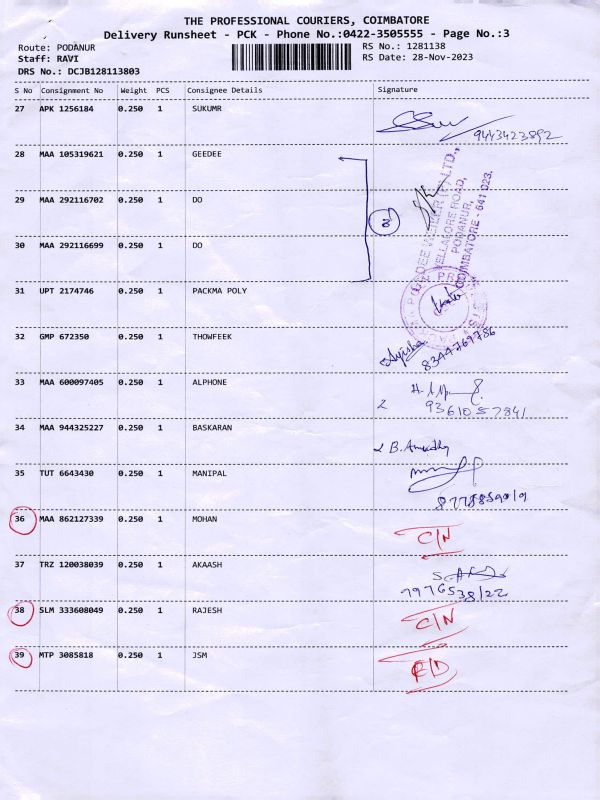 THE PROFESSIONAL COURIERS, COIMBATORE
Delivery Runsheet - PCK - Phone No.:0422-3505555 - Page No.:3
Route: PODANUR RS No.: 1281138
Staff: RAVI RS Date: 28-Nov-2023
DRS No.: DCJB128113803
S No Consignment No Weight PCS Consignee Details Signature
27 APK 1256184 0.250 1 SUKUMR
9443423892
28 MAA 105319621 0.250 1 GEEDEE
29 MAA 292116702 0.250 1 DO
30 MAA 292116699 0.250 1 DO
VELLALORE ROAD,
PODANUR,
COIMBATORE - 641 023.
31 UPT 2174746 0.250 1 PACKMA POLY
32 GMP 672350 0.250 1 THOWFEEK
Ayisha
8344769786
33 MAA 600097405 0.250 1 ALPHONE
9361057841
34 MAA 944325227 0.250 1 BASKARAN
35 TUT 6643430 0.250 1 MANIPAL
36 MAA 862127339 0.250 1 MOHAN C/N
37 TRZ 120038039 0.250 1 AKAASH
38 SLM 333608049 0.250 1 RAJESH C/N
39 MTP 3085818 0.250 1 JSM